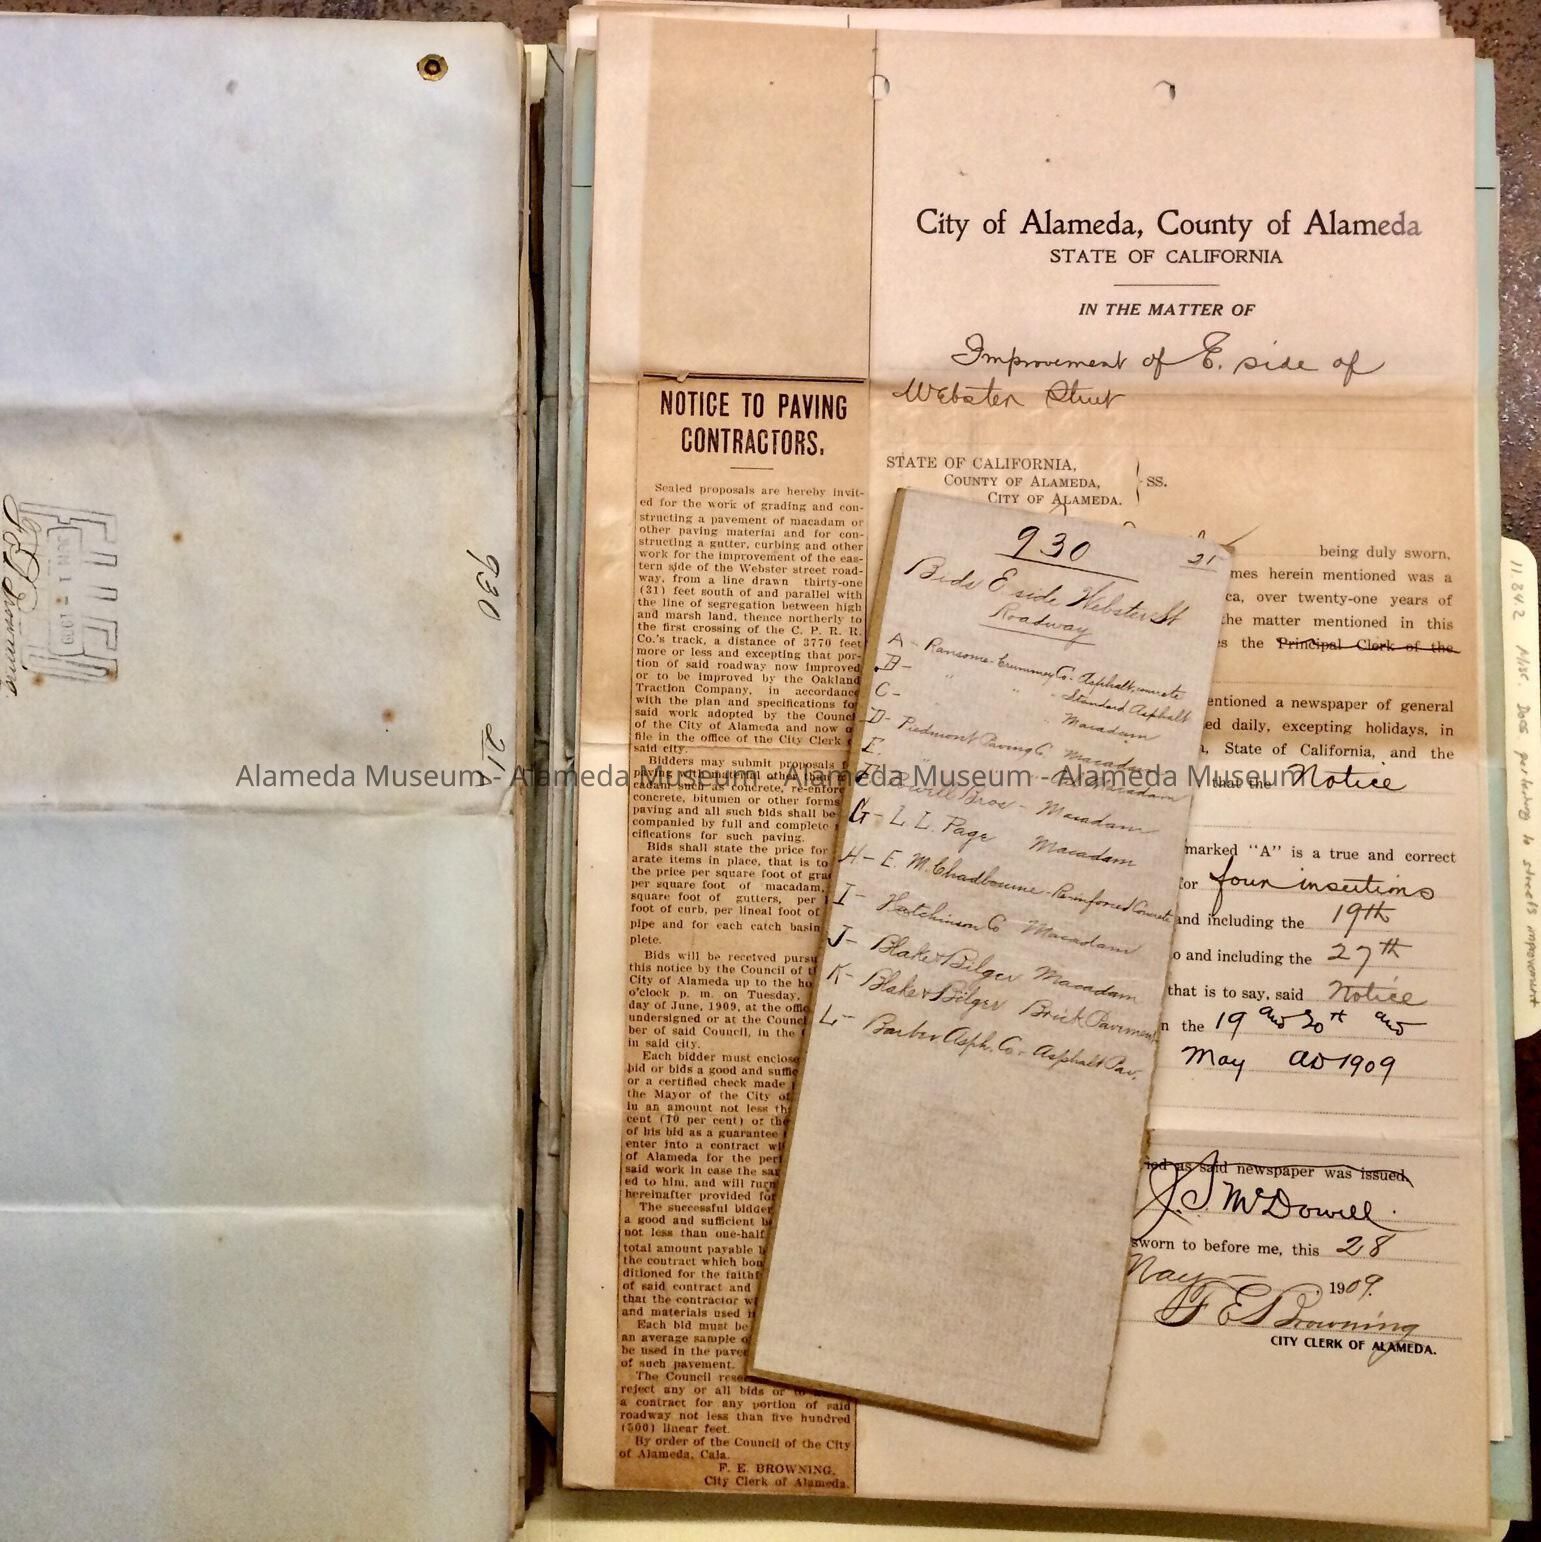 930
21
FILED
JUN 1 - 1909
F E Browning
City of Alameda, County of Alameda
STATE OF CALIFORNIA
IN THE MATTER OF
Improvement of E. side of
Webster Street
STATE OF CALIFORNIA,
COUNTY OF ALAMEDA,
CITY OF ALAMEDA.
SS.
being duly sworn,
mes herein mentioned was a
ca, over twenty-one years of
the matter mentioned in this
s the Principal Clerk of the
entioned a newspaper of general
ed daily, excepting holidays, in
, State of California, and the
that the Notice
marked "A" is a true and correct
for four insertions
and including the 19th
o and including the 27th
that is to say, said Notice
n the 19 and 20th and
May AD 1909
ied as said newspaper was issued,
J. S. McDowell.
sworn to before me, this 28
May 1909.
F E Browning
CITY CLERK OF ALAMEDA.
NOTICE TO PAVING
CONTRACTORS.
Sealed proposals are hereby invit-
ed for the work of grading and con-
structing a pavement of macadam or
other paving material and for con-
structing a gutter, curbing and other
work for the improvement of the eas-
tern side of the Webster street road-
way, from a line drawn thirty-one
(31) feet south of and parallel with
the line of segregation between high
and marsh land, thence northerly to
the first crossing of the C. P. R. R.
Co.'s track, a distance of 3770 feet
more or less and excepting that por-
tion of said roadway now improved
or to be improved by the Oakland
Traction Company, in accordance
with the plan and specifications fo
said work adopted by the Counc
of the City of Alameda and now o
file in the office of the City Clerk
said city.
Bidders may submit proposals f
paving with material other than
cadam such as concrete, re-enfor
concrete, bitumen or other forms
paving and all such bids shall be
companied by full and complete
cifications for such paving.
Bids shall state the price for
arate items in place, that is to
the price per square foot of gra
per square foot of macadam,
square foot of gutters, per
foot of curb, per lineal foot of
pipe and for each catch basin
plete.
Bids will be received pursu
this notice by the Council of t
City of Alameda up to the ho
o'clock p. m. on Tuesday,
day of June, 1909, at the offic
undersigned or at the Counc
ber of said Council, in the
in said city.
Each bidder must enclose
bid or bids a good and suffic
or a certified check made
the Mayor of the City of
in an amount not less th
cent (10 per cent) of the
of his bid as a guarantee
enter into a contract wi
of Alameda for the per
said work in case the sa
ed to him, and will furn
hereinafter provided fo
The successful bidder
a good and sufficient b
not less than one-half
total amount payable b
the contract which bon
ditioned for the faithf
of said contract and
that the contractor w
and materials used i
Each bid must be
an average sample o
be used in the pave
of such pavement.
The Council rese
reject any or all bids or to
a contract for any portion of said
roadway not less than five hundred
(500) linear feet.
By order of the Council of the City
of Alameda, Cala.
F. E. BROWNING,
City Clerk of Alameda.
930
21
Bids E side Webster St
Roadway
A - Ransome-Crummey Co. Asphalt, concrete
B - " " " Standard Asphalt
C - " Macadam
D - Piedmont Paving Co Macadam
E. Macadam
F Bros - Macadam
G - L L. Page Macadam
H - E. M. Chadbourne - Reinforced Concrete
I - Hutchinson Co Macadam
J - Blake & Bilger Macadam
K - Blake & Bilger Brick Pavement
L - Barber Asph. Co - Asphalt Pav.
11.84.2 Misc. Docs pertaining to streets improvement
Alameda Museum - Alameda Museum - Alameda Museum - Alameda Museum